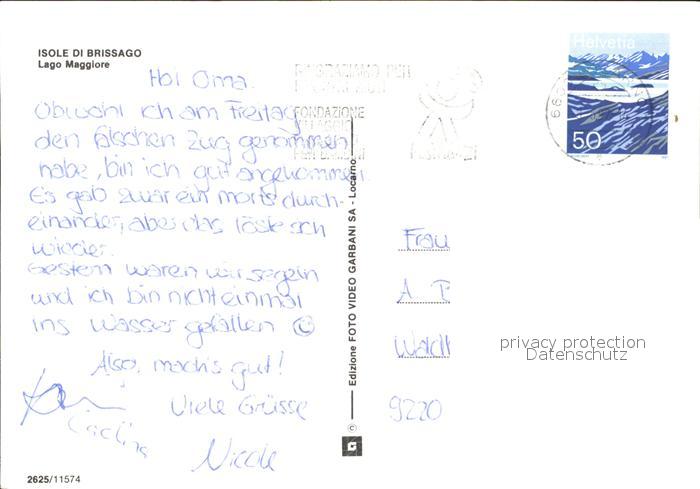 ISOLE DI BRISSAGO
Lago Maggiore
Hoi Oma.
Obwohl ich am Freitag
den falschen Zug genommen
habe, bin ich gut angekommen.
Es gab zwar ein mords durch-
einander, aber das löste sich
wieder.
Gestern waren wir segeln
und ich bin nicht einmal
ins Wasser gefallen ☺
Also, mach's gut!
Viele Grüsse
Nicole
2625/11574
Edizione FOTO VIDEO GARBANI SA - Locarno
©
G
RINGRAZIAMO PER
FONDAZIONE
VILLAGGIO
PESTALOZZI
Helvetia
50
Frau
A
9220
privacy protection
Datenschutz